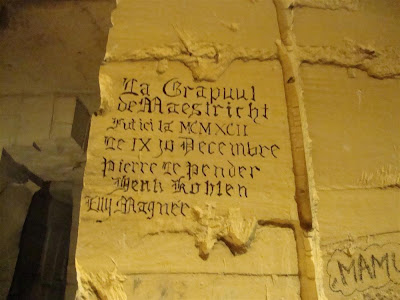 La Grapuul
de Maestricht
Fut ici la MCMXCII
Le IX 30 Decembre
Pierre Le Pender
Henk Rohlen
Lily Magnee
MAMU